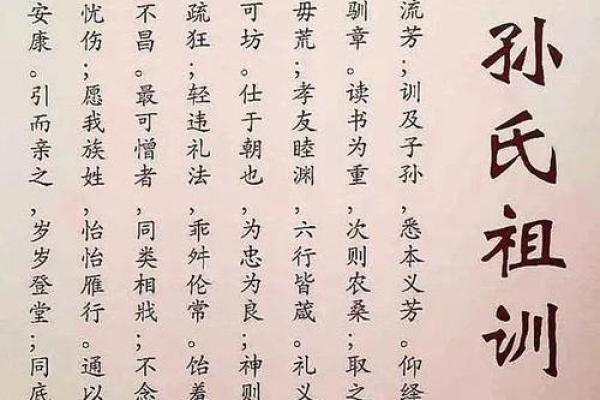 孙氏祖训
流芳;训及子孙,悉本义芳。仰绎
驯章。读书为重,次则农桑;取之
毋荒;孝友睦渊,六行皆葴。礼义
可坊。仕于朝也,为忠为良;神则
疏狂;轻违礼法,乖舛伦常。饴羞
不昌。最可憎者,同类相戕;不念
忧伤;愿我族姓,怡怡雁行。通以
安康。引而亲之,岁岁登堂;同底